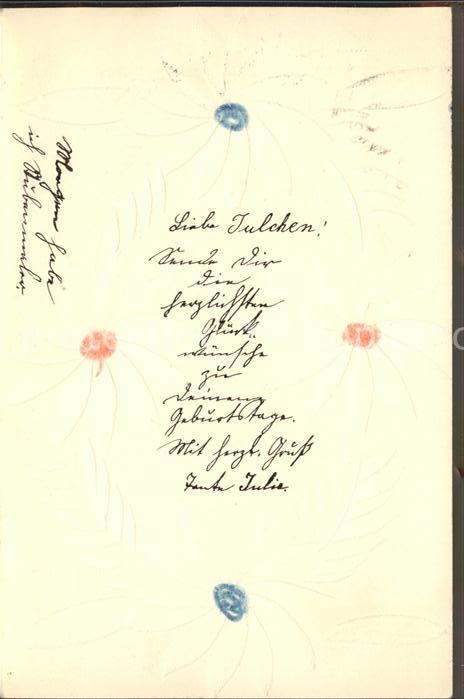 Liebe Julchen!
Sende Dir
die
herzlichsten
Glück-
wünsche
zu
Deinem
Geburtstage.
Mit herzl. Gruß
Tante Julie.
Morgen habe
ich